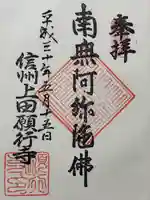 奉拝
南無阿弥陀佛
平成三十年五月十五日
信州上田願行寺